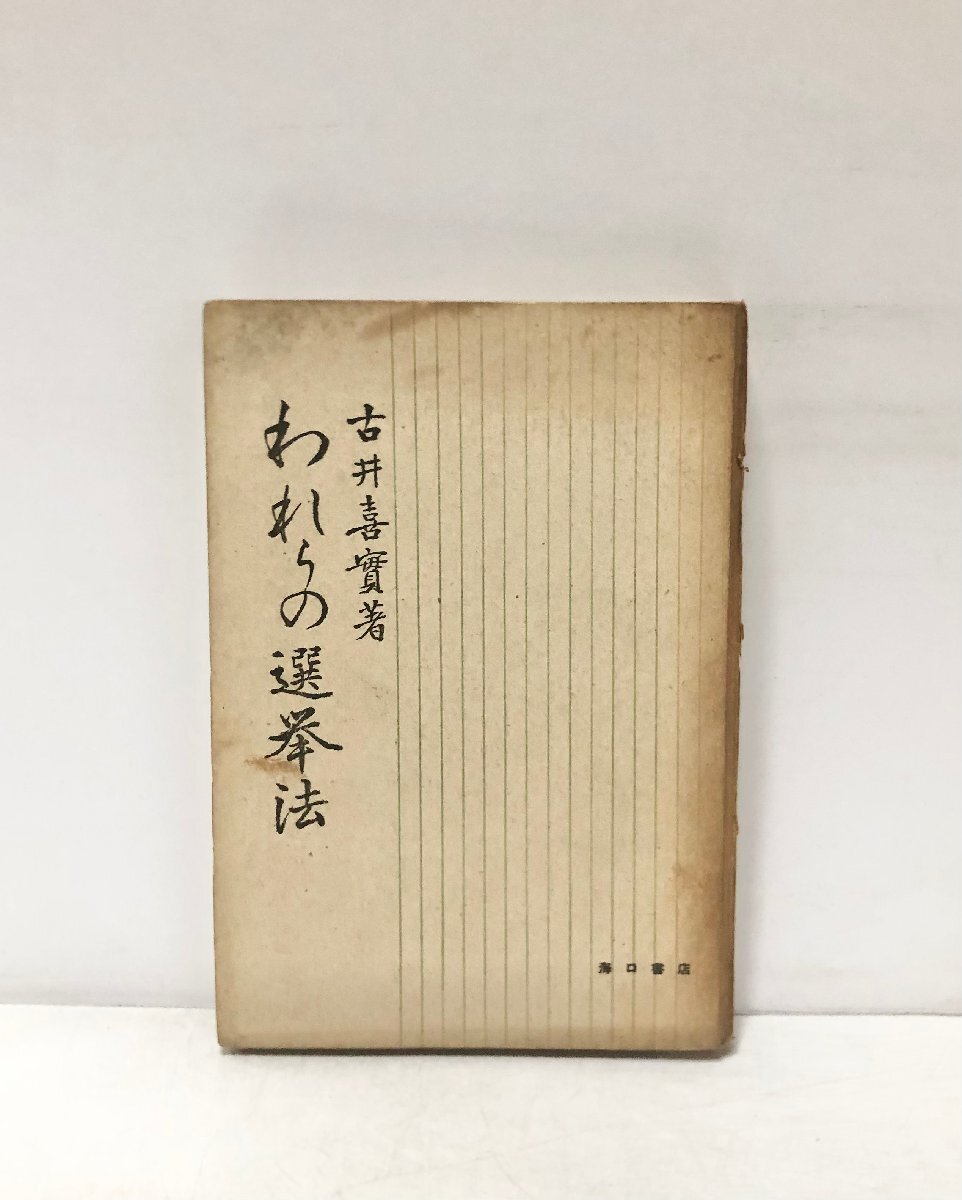 古井喜實著
われらの選挙法
海口書店